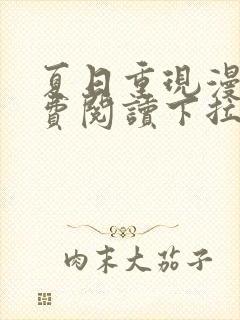 夏日重現漫
費閱讀下拉
肉末大茄子